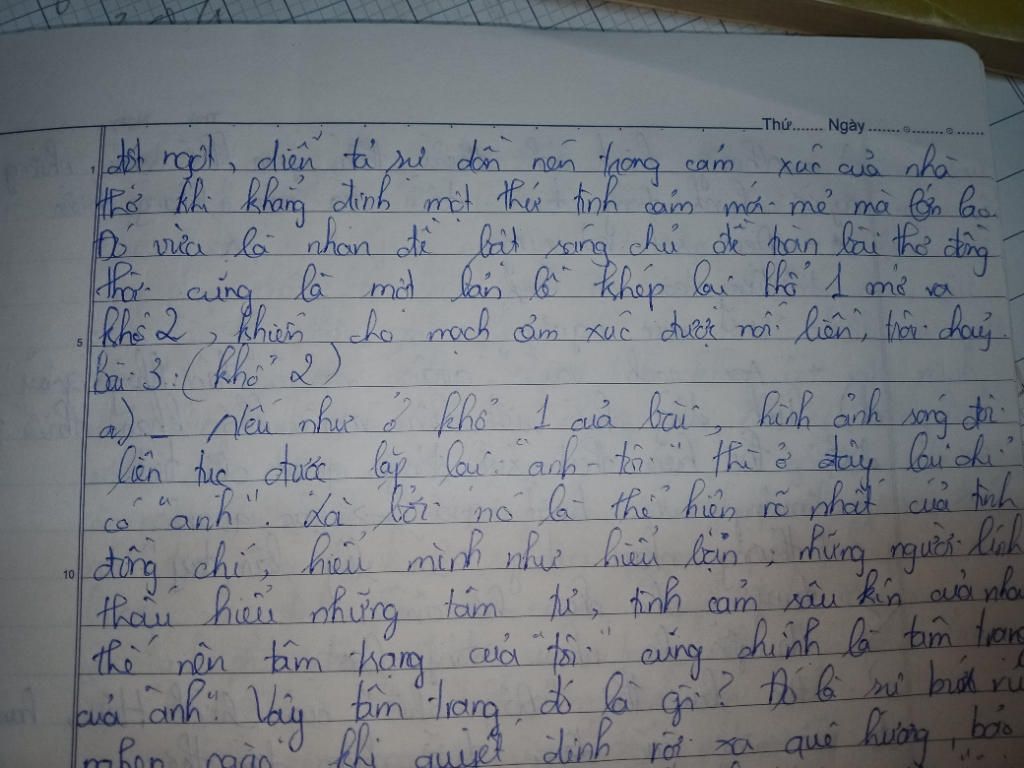 Thứ....... Ngày ....... o ....... o ......
1 đột ngột, diễn tả sự dồn nén trong cảm xúc của nhà
thơ khi khẳng định một thứ tình cảm mới mẻ mà lớn lao
Đó vừa là nhan đề bật sáng chủ đề toàn bài thơ đồng
thời cũng là một bản lề khép lại khổ 1 mở ra
5 khổ 2, khiến cho mạch cảm xúc được nối liền, trôi chảy.
Bài 3: (khổ 2)
a) - Nếu như ở khổ 1 của bài, hình ảnh song đôi
liên tục được lặp lại "anh - tôi" thì ở đây lại chỉ
có "anh". Là bởi nó là thể hiện rõ nhất của tình
10 đồng chí, hiểu mình như hiểu bạn, những người lính
thấu hiểu những tâm tư, tình cảm sâu kín của nhau
thế nên tâm trạng của "tôi" cũng chính là tâm trạng
của "anh". Vậy tâm trạng đó là gì? Đó là sự bứt rứt
khi quyết định rời xa quê hương,